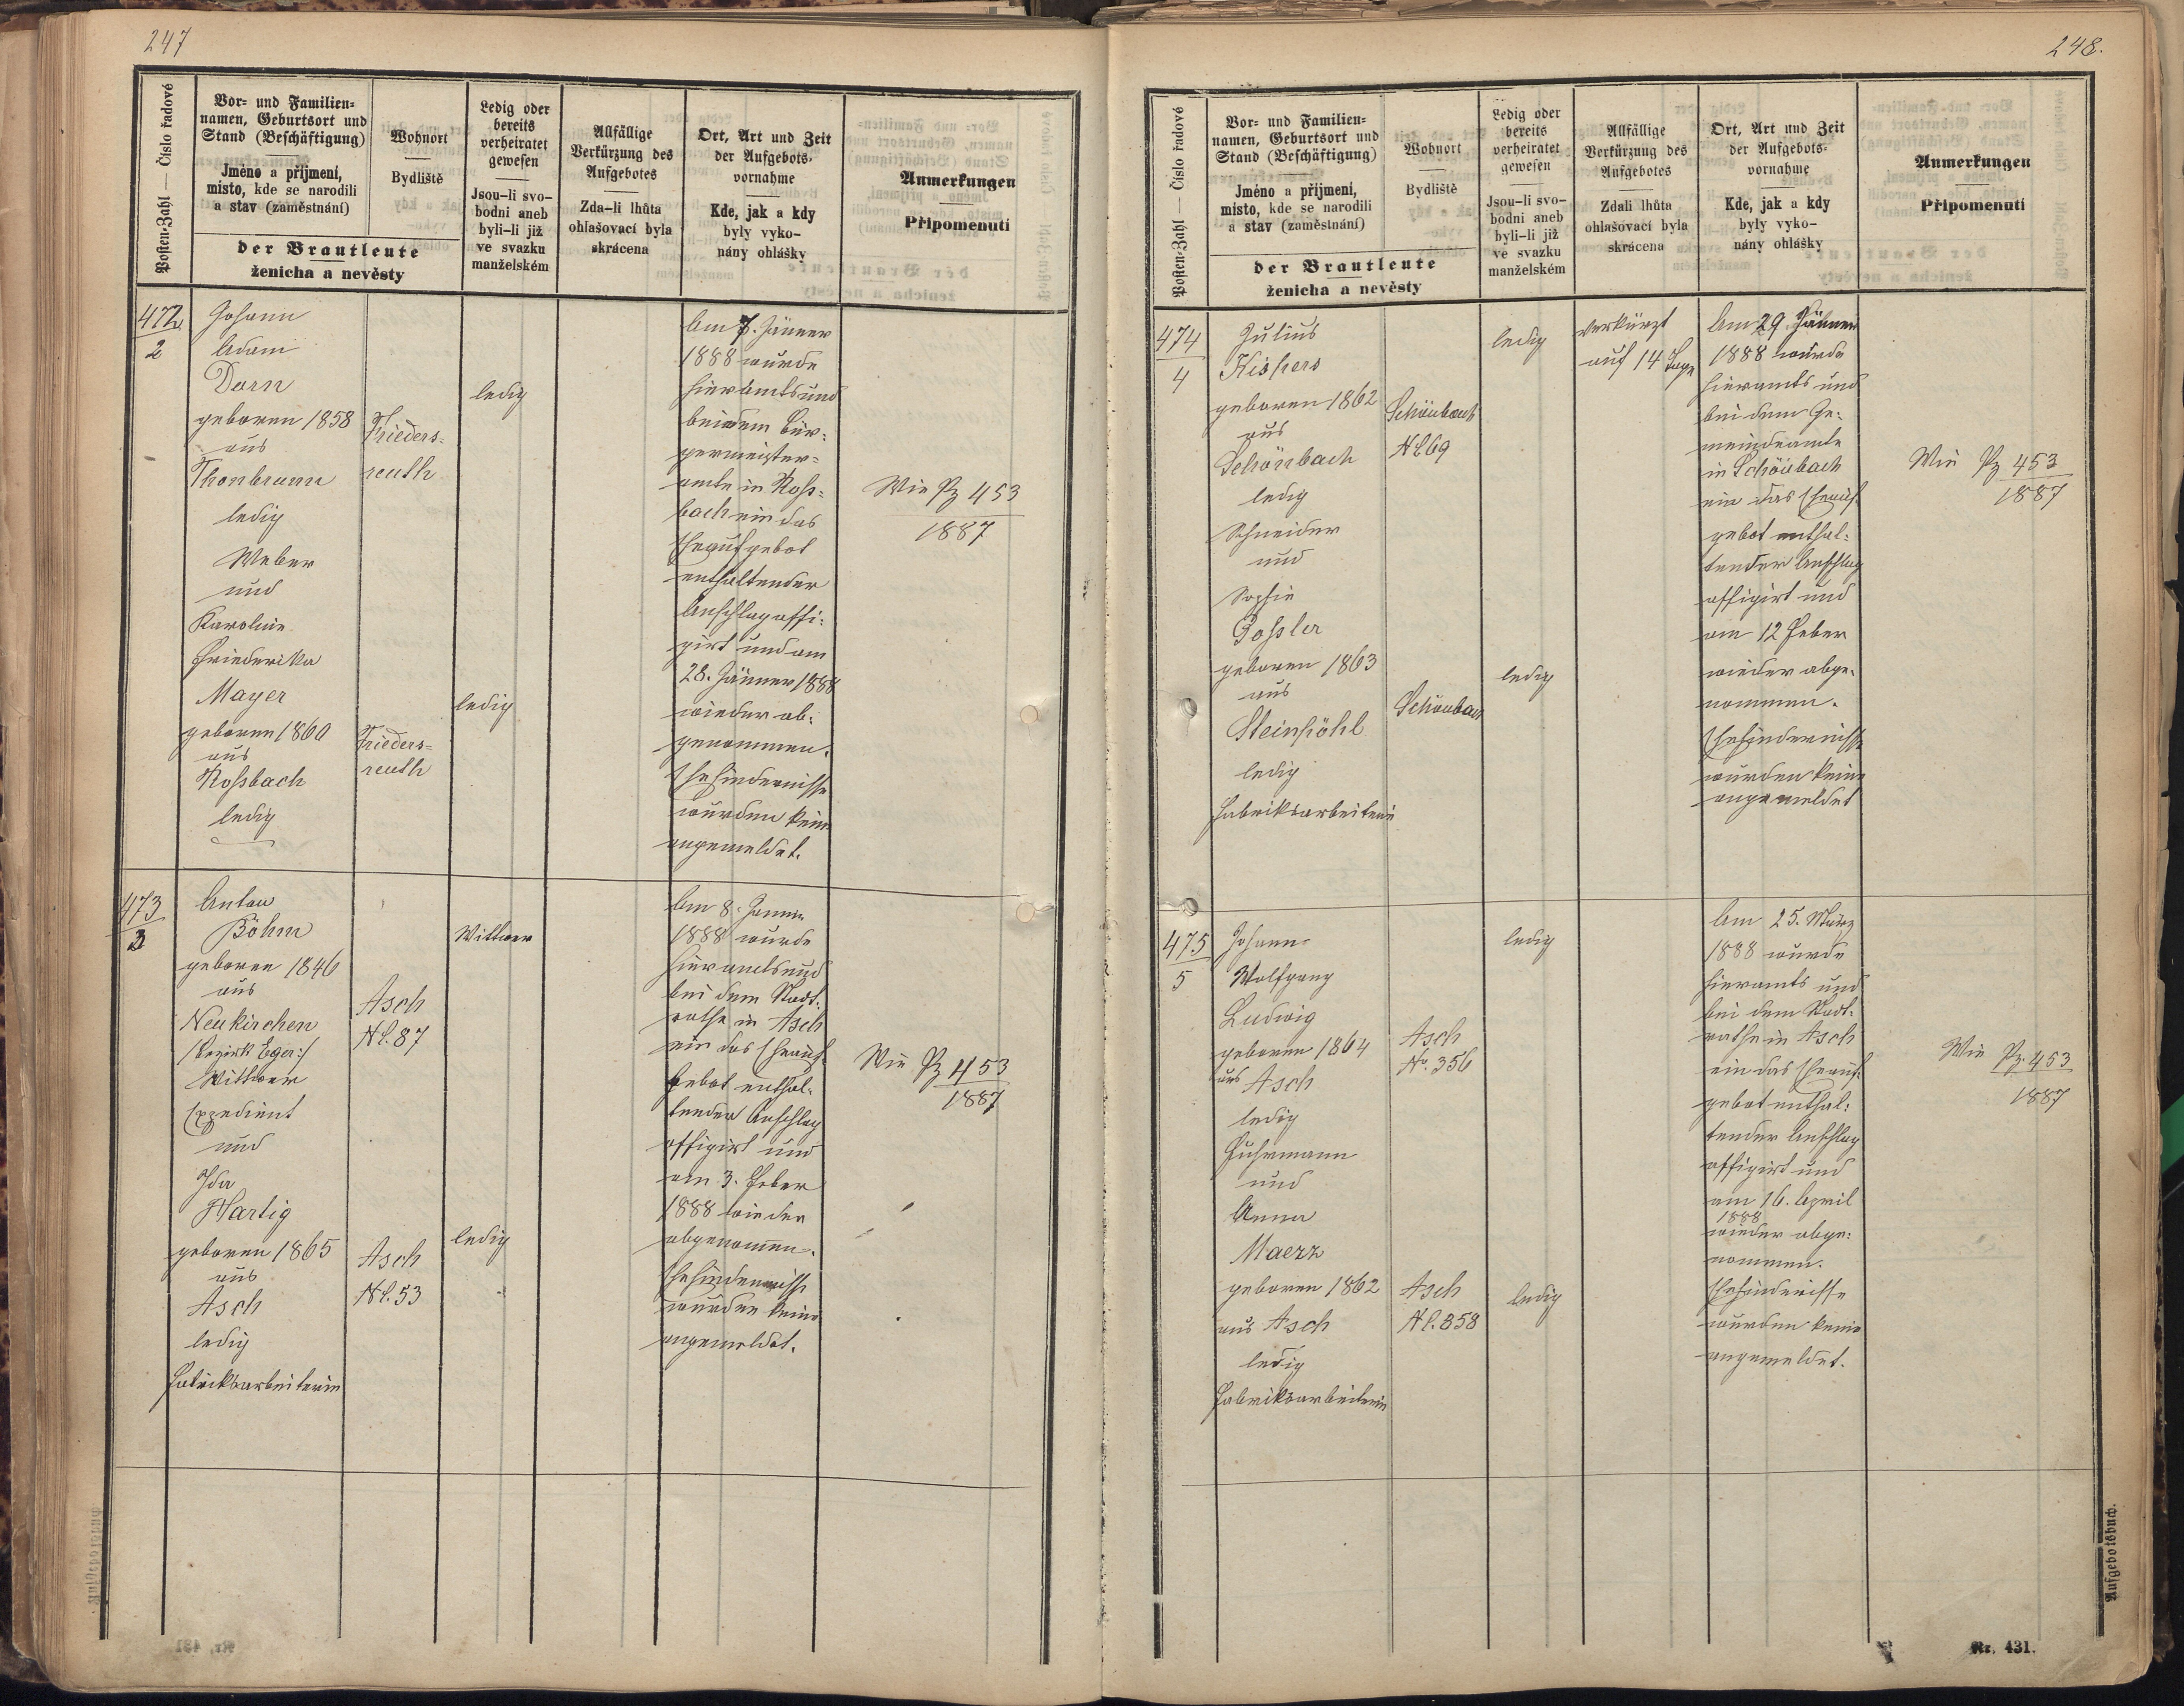 247
Posten-Zahl — Číslo řadové
Vor- und Familien-
namen, Geburtsort und
Stand (Beschäftigung)
Jméno a přijmení,
místo, kde se narodili
a stav (zaměstnání)
Wohnort
Bydliště
der Brautleute
ženicha a nevěsty
Ledig oder
bereits
verheiratet
gewesen
Jsou-li svo-
bodni aneb
byli-li již
ve svazku
manželském
Allfällige
Verkürzung des
Aufgebotes
Zda-li lhůta
ohlašovací byla
skrácena
Ort, Art und Zeit
der Aufgebots-
vornahme
Kde, jak a kdy
byly vyko-
nány ohlášky
Anmerkungen
Připomenutí
472
2
Johann
Adam
Dorn
geboren 1858
aus
Thonbrunn
ledig
Weber
und
Karoline
Friederika
Mayer
geboren 1860
aus
Roßbach
ledig
Frieders=
reuth
Frieders=
reuth
ledig
ledig
Am 7. Jänner
1888 wurde
hieramts und
bei dem Bür=
germeister=
amte in Roß=
bach ein das
Eheaufgebot
enthaltender
Anschlag affi=
girt und am
28. Jänner 1888
wieder ab=
genommen.
Ehehindernisse
wurden keine
angemeldet.
Wie Pz 453
1887
473
3
Anton
Böhm
geboren 1846
aus
Neukirchen
/:Bezirk Eger:/
Wittwer
Expedient
und
Ida
Hartig
geboren 1865
aus
Asch
ledig
Fabriksarbeiterin
Asch
Nl. 87
Asch
Nl. 53
Wittwer
ledig
Am 8. Jänner
1888 wurde
hieramts und
bei dem Stadt=
rathe in Asch
ein das Eheauf=
gebot enthal=
tender Anschlag
affigirt und
am 3. Feber
1888 wieder
abgenommen.
Ehehindernisse
wurden keine
angemeldet.
Wie Pz 453
1887
248.
Posten-Zahl — Číslo řadové
Vor- und Familien-
namen, Geburtsort und
Stand (Beschäftigung)
Jméno a přijmení,
místo, kde se narodili
a stav (zaměstnání)
Wohnort
Bydliště
der Brautleute
ženicha a nevěsty
Ledig oder
bereits
verheiratet
gewesen
Jsou-li svo-
bodni aneb
byli-li již
ve svazku
manželském
Allfällige
Verkürzung des
Aufgebotes
Zdali lhůta
ohlašovací byla
skrácena
Ort, Art und Zeit
der Aufgebots-
vornahme
Kde, jak a kdy
byly vyko-
nány ohlášky
Anmerkungen
Připomenutí
474
4
Julius
Kispers
geboren 1862
aus
Schönbach
ledig
Schneider
und
Sophie
Goßler
geboren 1863
aus
Steinpöhl
ledig
Fabriksarbeiterin
Schönbach
Nl 69
Schönbach
ledig
ledig
verkürzt
auf 14 Tage
Am 29. Jänner
1888 wurde
hieramts und
bei dem Ge=
meindeamte
in Schönbach
ein das Eheauf
gebot enthal=
tender Anschlag
affigirt und
am 12 Feber
wieder abge=
nommen.
Ehehindernisse
wurden keine
angemeldet
Wie Pz 453
1887
475
5
Johann
Wolfgang
Ludwig
geboren 1864
aus Asch
ledig
Fuhrmann
und
Anna
Maerz
geboren 1862
aus Asch
ledig
Fabriksarbeiterin
Asch
No. 356
Asch
Nl. 858
ledig
ledig
Am 25. März
1888 wurde
hieramts und
bei dem Stadt=
rathe in Asch
ein das Eheauf=
gebot enthal=
tender Anschlag
affigirt und
am 16. April
1888
wieder abge=
nommen.
Ehehindernisse
wurden keine
angemeldet.
Wie Pz. 453
1887
Aufgebotsbuch.
Nr. 431.